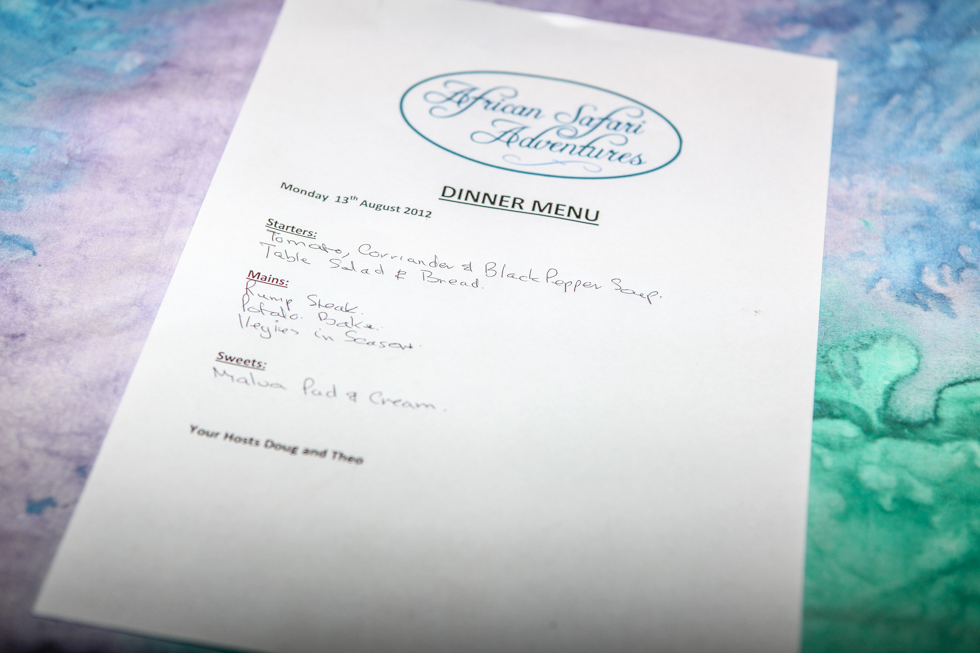 African Safari
Adventures
DINNER MENU
Monday 13th August 2012
Starters:
Tomato, Corriander & Black Pepper Soup.
Table Salad & Bread.
Mains:
Rump Steak.
Potato Bake.
Vegies in Season.
Sweets:
Malva Pud & Cream.
Your Hosts Doug and Theo